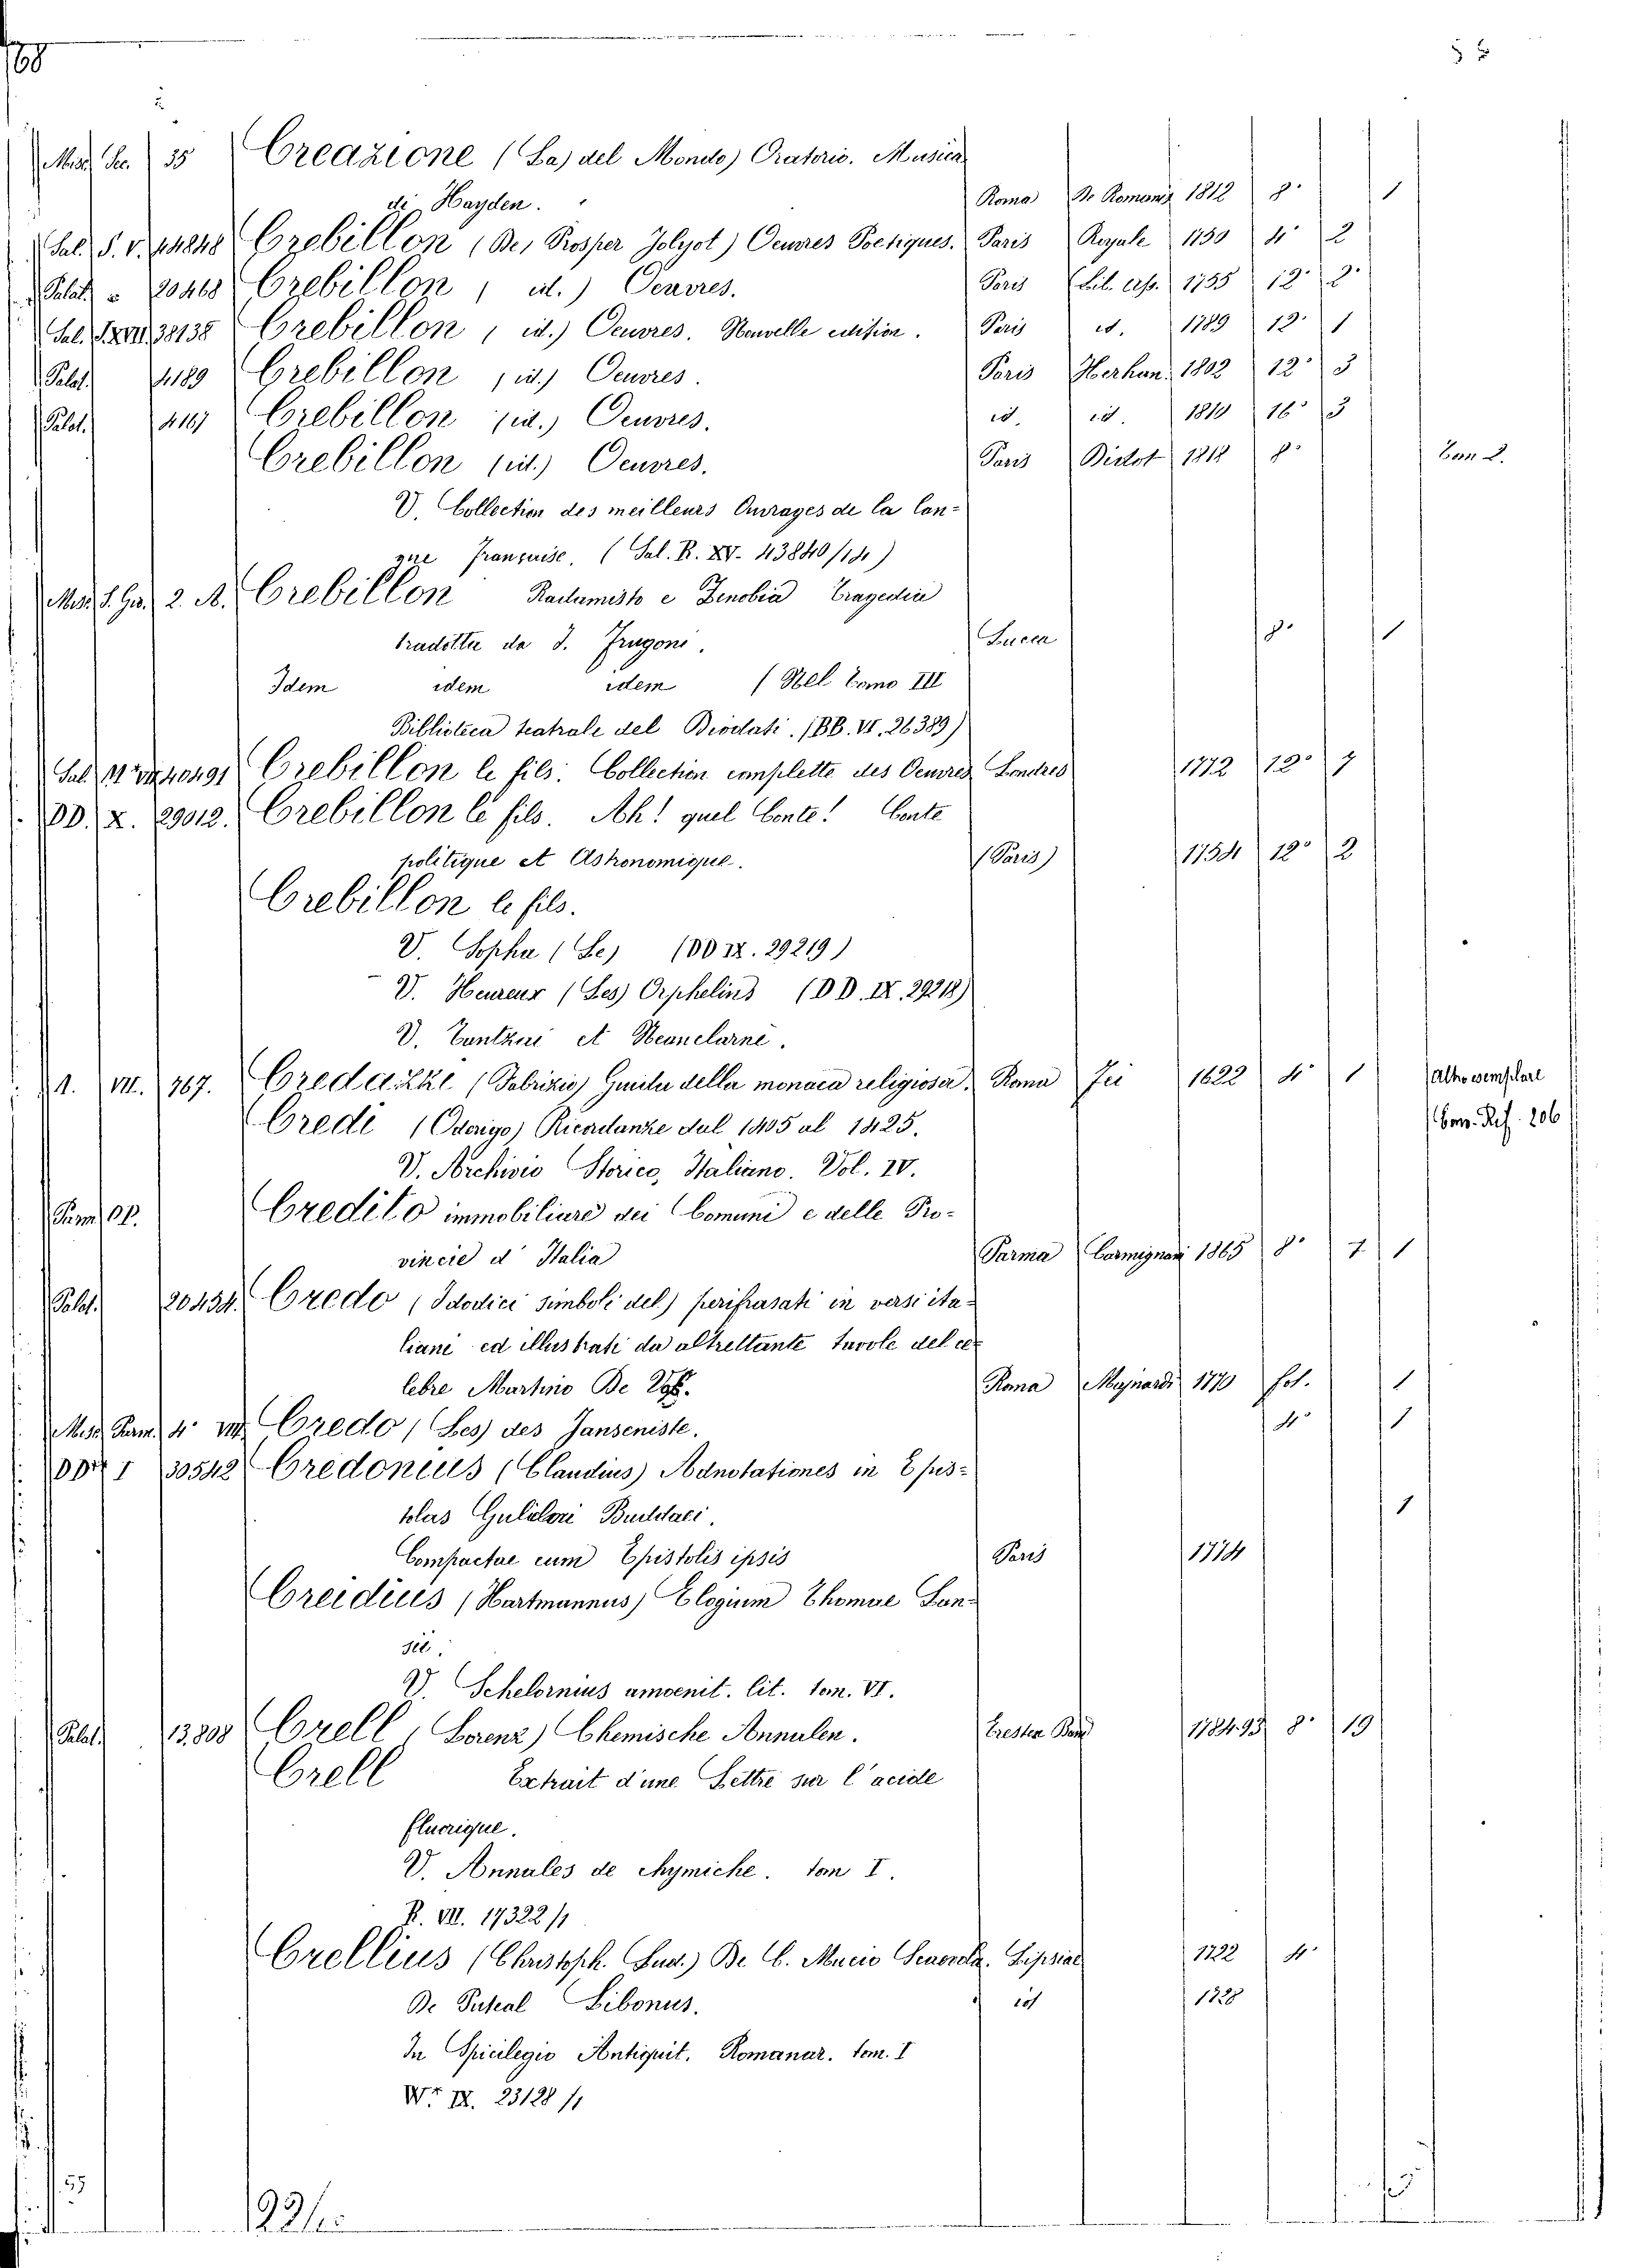 168
Misc. Sec. 35 Creazione (La) del Mondo) Oratorio. Musica
di Hayden. Roma De Romanis 1812 8° 1
Sal. S. V. 44848 Crebillon (De, Prosper Jolyot) Oeuvres Poetiques. Paris Royale 1750 4° 2
Palat. 20468 Crebillon, id.) Oeuvres. Paris Lib. ass. 1755 12° 2
Sal. S. XVII. 38138 Crebillon, id.) Oeuvres. Nouvelle edition. Paris id. 1789 12° 1
Palat. 4189 Crebillon, id.) Oeuvres. Paris Herhan. 1802 12° 3
Palat. 4167 Crebillon (id.) Oeuvres. id. id. 1810 16° 3
Crebillon (id.) Oeuvres. Paris Didot 1818 8°
V. Collection des meilleurs Ouvrages de la lan-
gue française. (Sal. R. XV. 43840/14)
2. A. Crebillon Radamisto e Zenobia Tragedia
tradotta da I. Frugoni. Lucca 8° 1
Idem idem idem (Nel Tomo III
Biblioteca teatrale del Diodati. (BB. VI. 26389)
Sal. 40491 Crebillon le fils. Collection complette des Oeuvres Londres 1772 12° 7
DD. X. 29012. Crebillon le fils. Ah! quel Conte! Conte
politique et Astronomique. (Paris) 1754 12° 2
Crebillon le fils.
V. Sopha (Le) (DD IX. 29219)
V. Heureux (Les) Orphelins (DD. IX. 29218)
V. Tantzai et Neandarné.
A. VII. 767. Credazzi (Fabrizio) Guida della monaca religiosa. Roma Fei 1622 4° 1 Altro esemplare
Credi (Oderigo) Ricordanze dal 1405 al 1425. 206
V. Archivio Storico, Italiano. Vol. IV.
Credito immobiliare dei Comuni e delle Pro-
vincie d'Italia Parma Carmignani 1865 8° 1
Palat. 20434. Credo (I dodici simboli del) perifrasati in versi ita-
liani ed illustrati da altrettante tavole del ce-
lebre Martino De Vos. Roma Majnardi 1770 fol. 1
Misc. Parm. 4° VIII. Credo (Les) des Janseniste. 4° 1
I 30542 Credonius (Claudius) Adnotationes in Epis-
tolas Gulielmi Buddaei. 1
Compactae cum Epistolis ipsis Paris 1774
Creidius (Hartmannus) Elogium Thomae Lan-
sii.
V. Schelornius amoenit. lit. tom. VI.
Palat. 13,808 Crell, Lorenz) Chemische Annalen. 1784.95 8° 19
Crell Extrait d'une Lettre sur l'acide
fluorique.
V. Annales de chymiche. tom I.
R. VII. 17322/1
Crellius (Christoph. Lud.) De C. Mucio Scaevola. Lipsiae 1722 4°
De Puteal Libonus. id 1728
In Spicilegio Antiquit. Romanar. tom. I
Wr IX. 23128/1